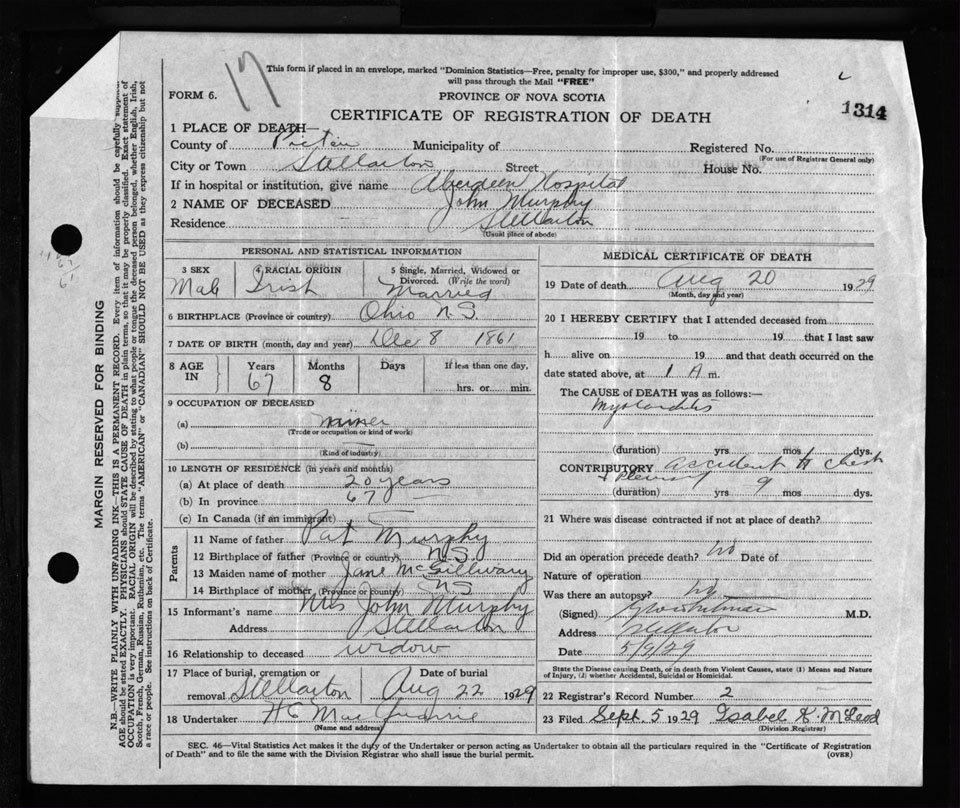 17
This form if placed in an envelope, marked "Dominion Statistics—Free, penalty for improper use, $300," and properly addressed
will pass through the Mail "FREE"
FORM 6.
PROVINCE OF NOVA SCOTIA
1314
CERTIFICATE OF REGISTRATION OF DEATH
1 PLACE OF DEATH—
County of Pictou Municipality of Registered No.
(For use of Registrar General only)
City or Town Stellarton Street House No.
If in hospital or institution, give name Aberdeen Hospital
2 NAME OF DECEASED John Murphy
Residence Stellarton
(Usual place of abode)
PERSONAL AND STATISTICAL INFORMATION
3 SEX 4 RACIAL ORIGIN 5 Single, Married, Widowed or Divorced. (Write the word)
Male Irish Married
6 BIRTHPLACE (Province or country) Ohio N.S.
7 DATE OF BIRTH (month, day and year) Dec 8 1861
8 AGE IN Years Months Days If less than one day,
67 8 hrs. or min.
9 OCCUPATION OF DECEASED
(a) miner
(Trade or occupation or kind of work)
(b) —
(Kind of industry)
10 LENGTH OF RESIDENCE (in years and months)
(a) At place of death 20 years
(b) In province 67 —
(c) In Canada (if an immigrant) —
Parents
11 Name of father Pat Murphy
12 Birthplace of father (Province or country) N.S.
13 Maiden name of mother Jane McGillivary
14 Birthplace of mother (Province or country) N.S
15 Informant's name Mrs John Murphy
Address Stellarton
16 Relationship to deceased widow
17 Place of burial, cremation or removal Stellarton Date of burial Aug 22 1929
18 Undertaker
(Name and address)
MEDICAL CERTIFICATE OF DEATH
19 Date of death Aug 20 1929
(Month, day and year)
20 I HEREBY CERTIFY that I attended deceased from
19 to 19 that I last saw
h alive on 19 and that death occurred on the
date stated above, at 1 A m.
The CAUSE of DEATH was as follows:—
Myocarditis
(duration) yrs mos dys.
CONTRIBUTORY accident to chest
+ Pleurisy
(duration) yrs 9 mos dys.
21 Where was disease contracted if not at place of death?
Did an operation precede death? no Date of
Nature of operation
Was there an autopsy? no
(Signed) M.D.
Address Stellarton
Date 5/9/29
State the Disease causing Death, or in death from Violent Causes, state (1) Means and Nature
of Injury, (2) whether Accidental, Suicidal or Homicidal.
22 Registrar's Record Number 2
23 Filed Sept. 5 1929 Isabel K. McLeod
(Division Registrar)
SEC. 46—Vital Statistics Act makes it the duty of the Undertaker or person acting as Undertaker to obtain all the particulars required in the "Certificate of Registration
of Death" and to file the same with the Division Registrar who shall issue the burial permit.
(OVER)
MARGIN RESERVED FOR BINDING
N.B.—WRITE PLAINLY WITH UNFADING INK—THIS IS A PERMANENT RECORD. Every item of information should be carefully
AGE should be stated EXACTLY. PHYSICIANS should STATE CAUSE OF DEATH in plain terms, so that it may be properly classified. Exact statement of
OCCUPATION is very important. RACIAL ORIGIN will be described by stating to what people or tongue the deceased person belonged, whether English, Irish,
Scotch, French, German, Russian, Ruthenian, etc. The terms "AMERICAN" or "CANADIAN" SHOULD NOT BE USED as they express citizenship but not
a race or people. See instructions on back of Certificate.